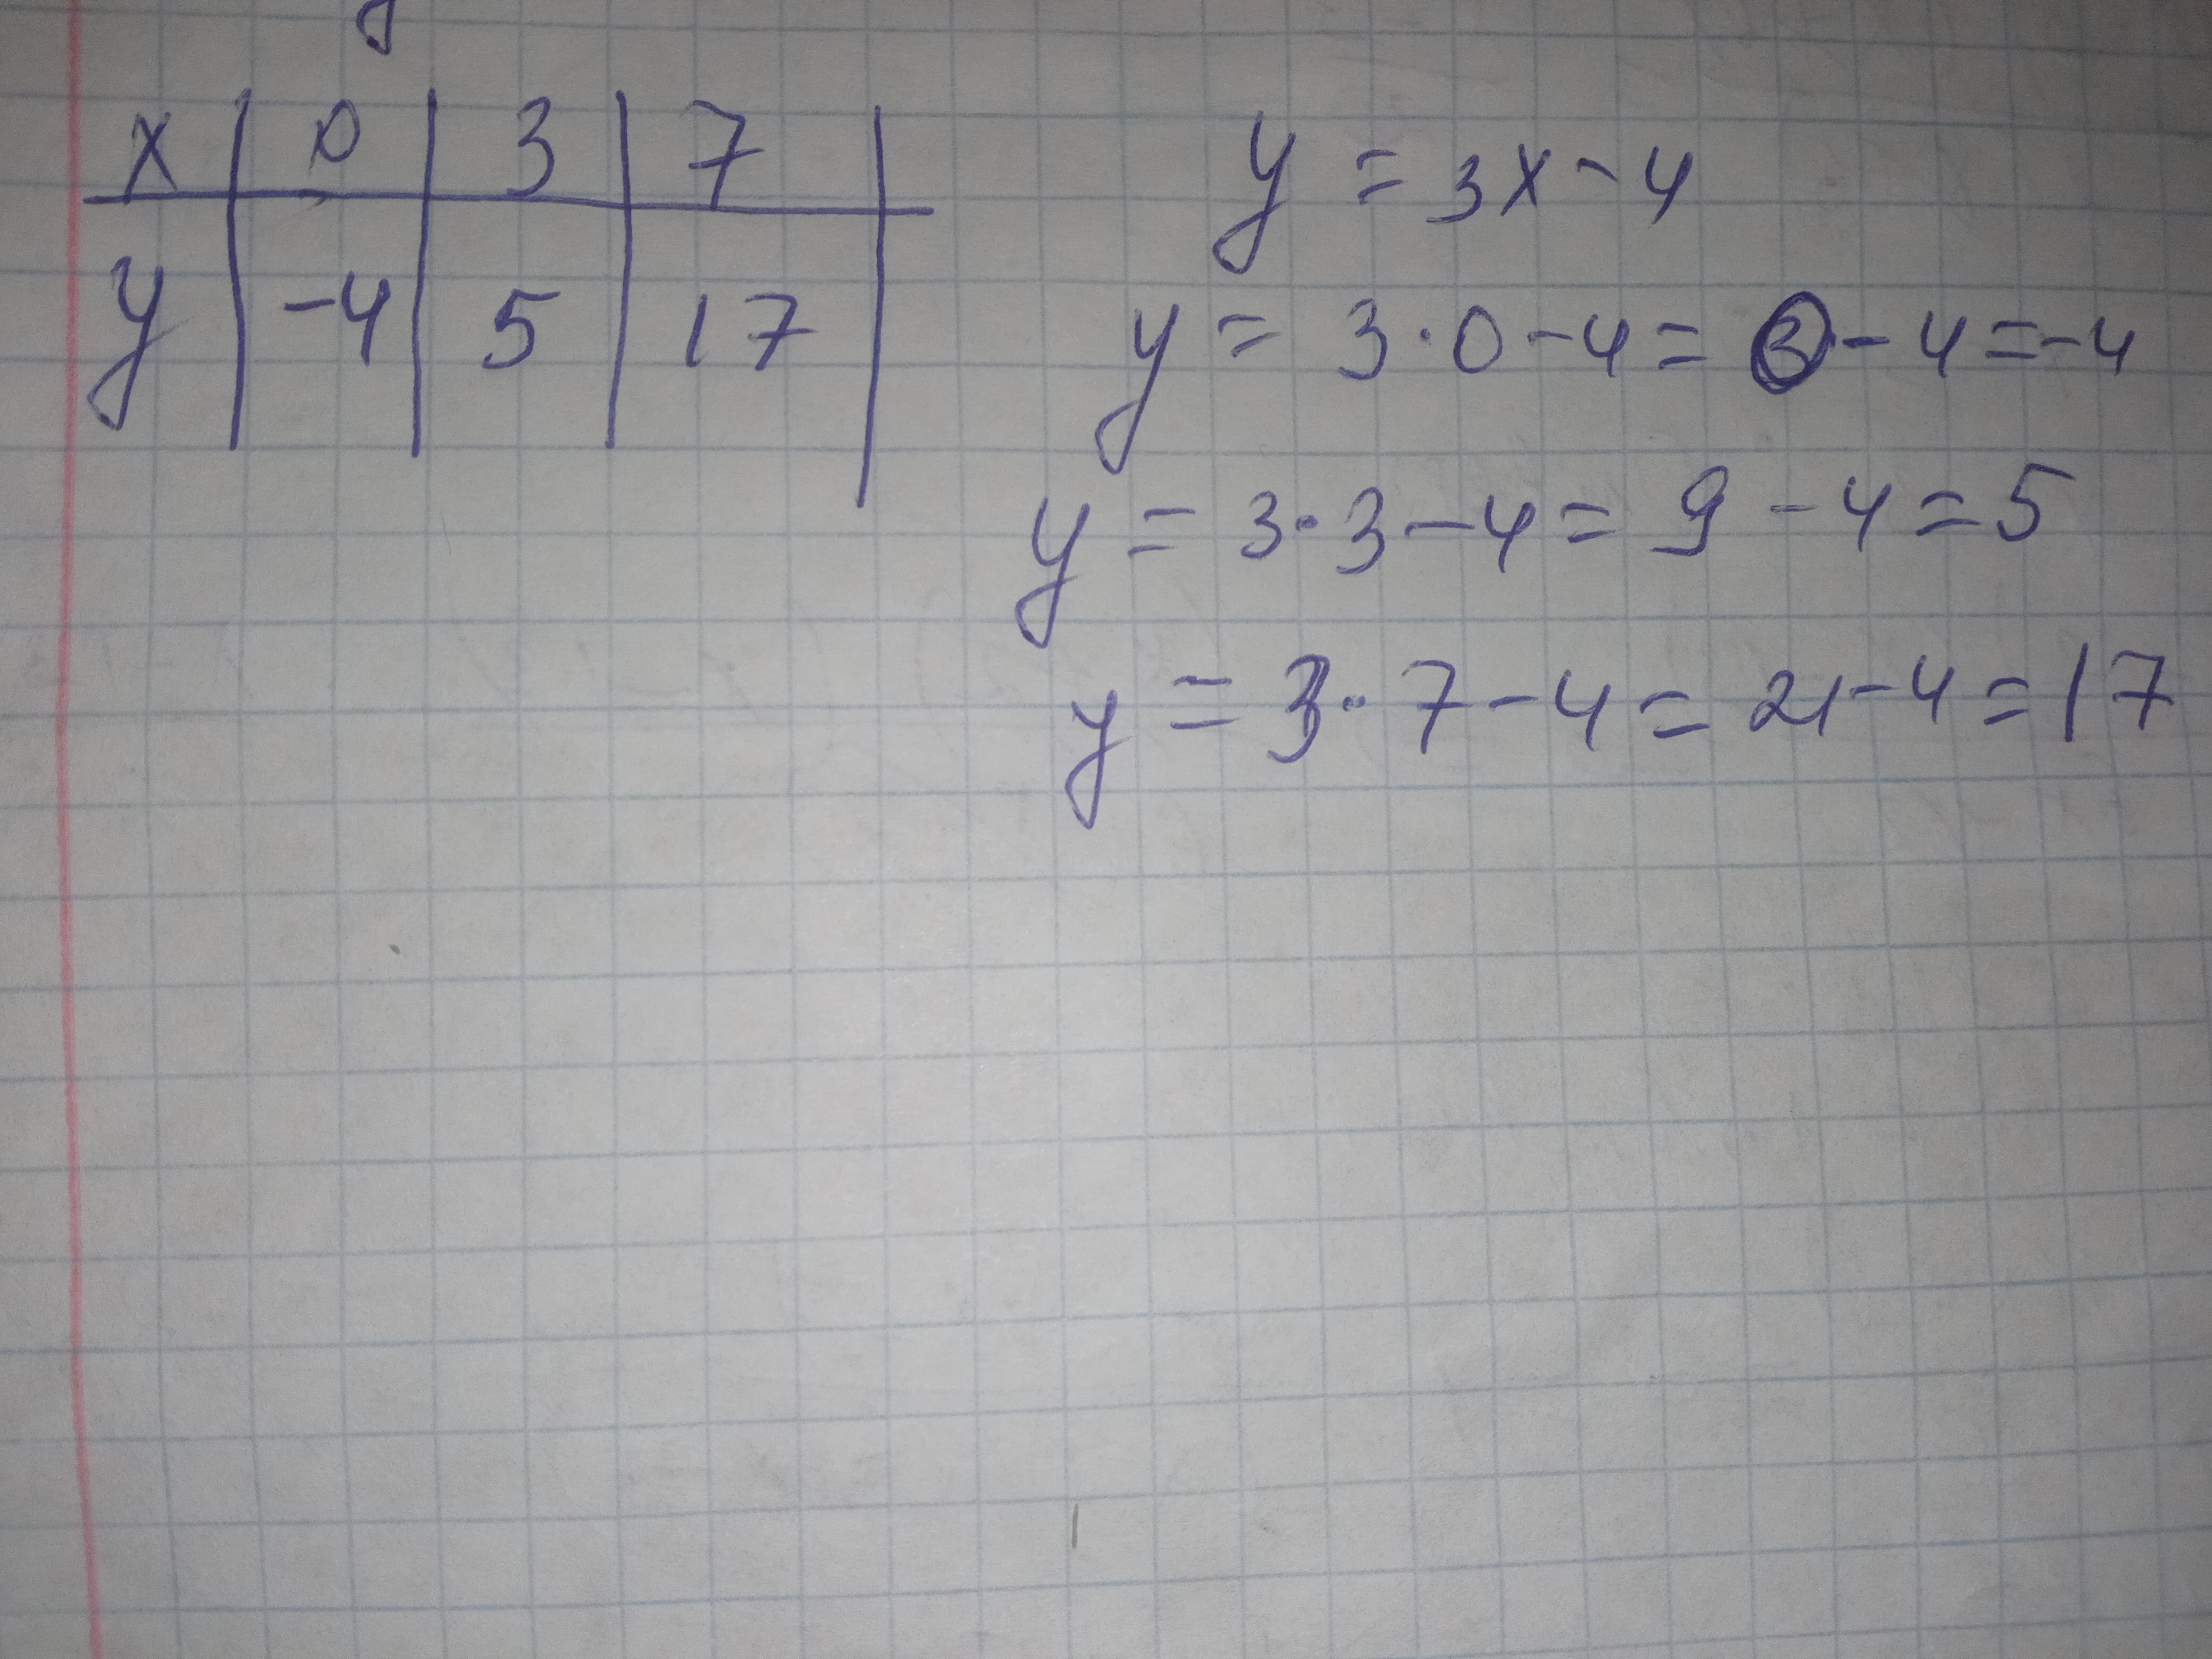 x | 0 | 3 | 7 |
y | -4 | 5 | 17 |
y = 3x - 4
y = 3·0 - 4 = 0 - 4 = -4
y = 3·3 - 4 = 9 - 4 = 5
y = 3·7 - 4 = 21 - 4 = 17